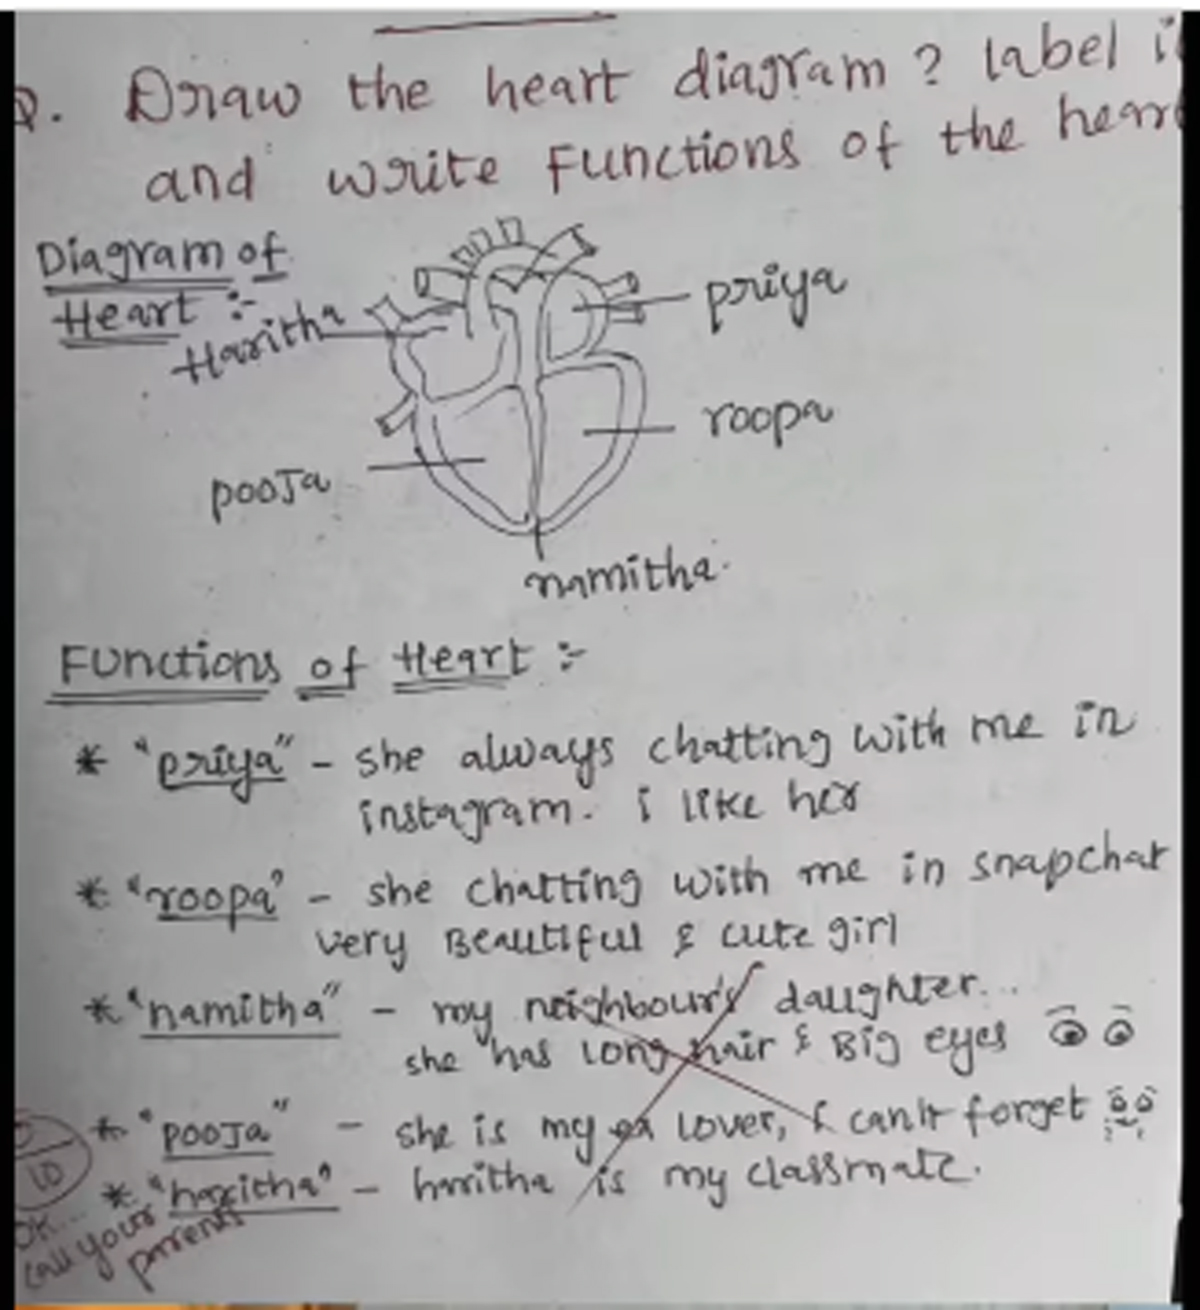 Q. Draw the heart diagram ? Label i
and write Functions of the hear
Diagram of
Heart :-
Haritha
priya
roopa
pooJa
namitha.
Functions of Heart :-
* "priya" - she always chatting with me in
instagram. i like her
* "roopa" - she chatting with me in snapchat
very Beautiful & cute girl
* "namitha" - my neighbour's daughter...
she has long hair & Big eyes
* "pooJa" - she is my ex lover, I can't forget
* "haritha" - haritha is my classmate.
10
OK...
call your
parents